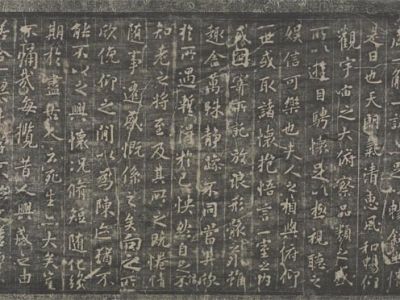 一觴一詠亦足以暢敘
是日也天朗氣清惠風和暢仰
觀宇宙之大俯察品類之盛
所以遊目騁懷足以極視聽之
娛信可樂也夫人之相與俯仰
一世或取諸懷抱悟言一室之內
或因寄所託放浪形骸之外雖
趣舍萬殊靜躁不同當其欣
於所遇暫得於己快然自足不
知老之將至及其所之既惓情
隨事遷感慨係之矣向之所
欣俛仰之閒以為陳迹猶不
能不以之興懷況脩短隨化終
期於盡古人云死生亦大矣豈
不痛哉每攬昔人興感之由